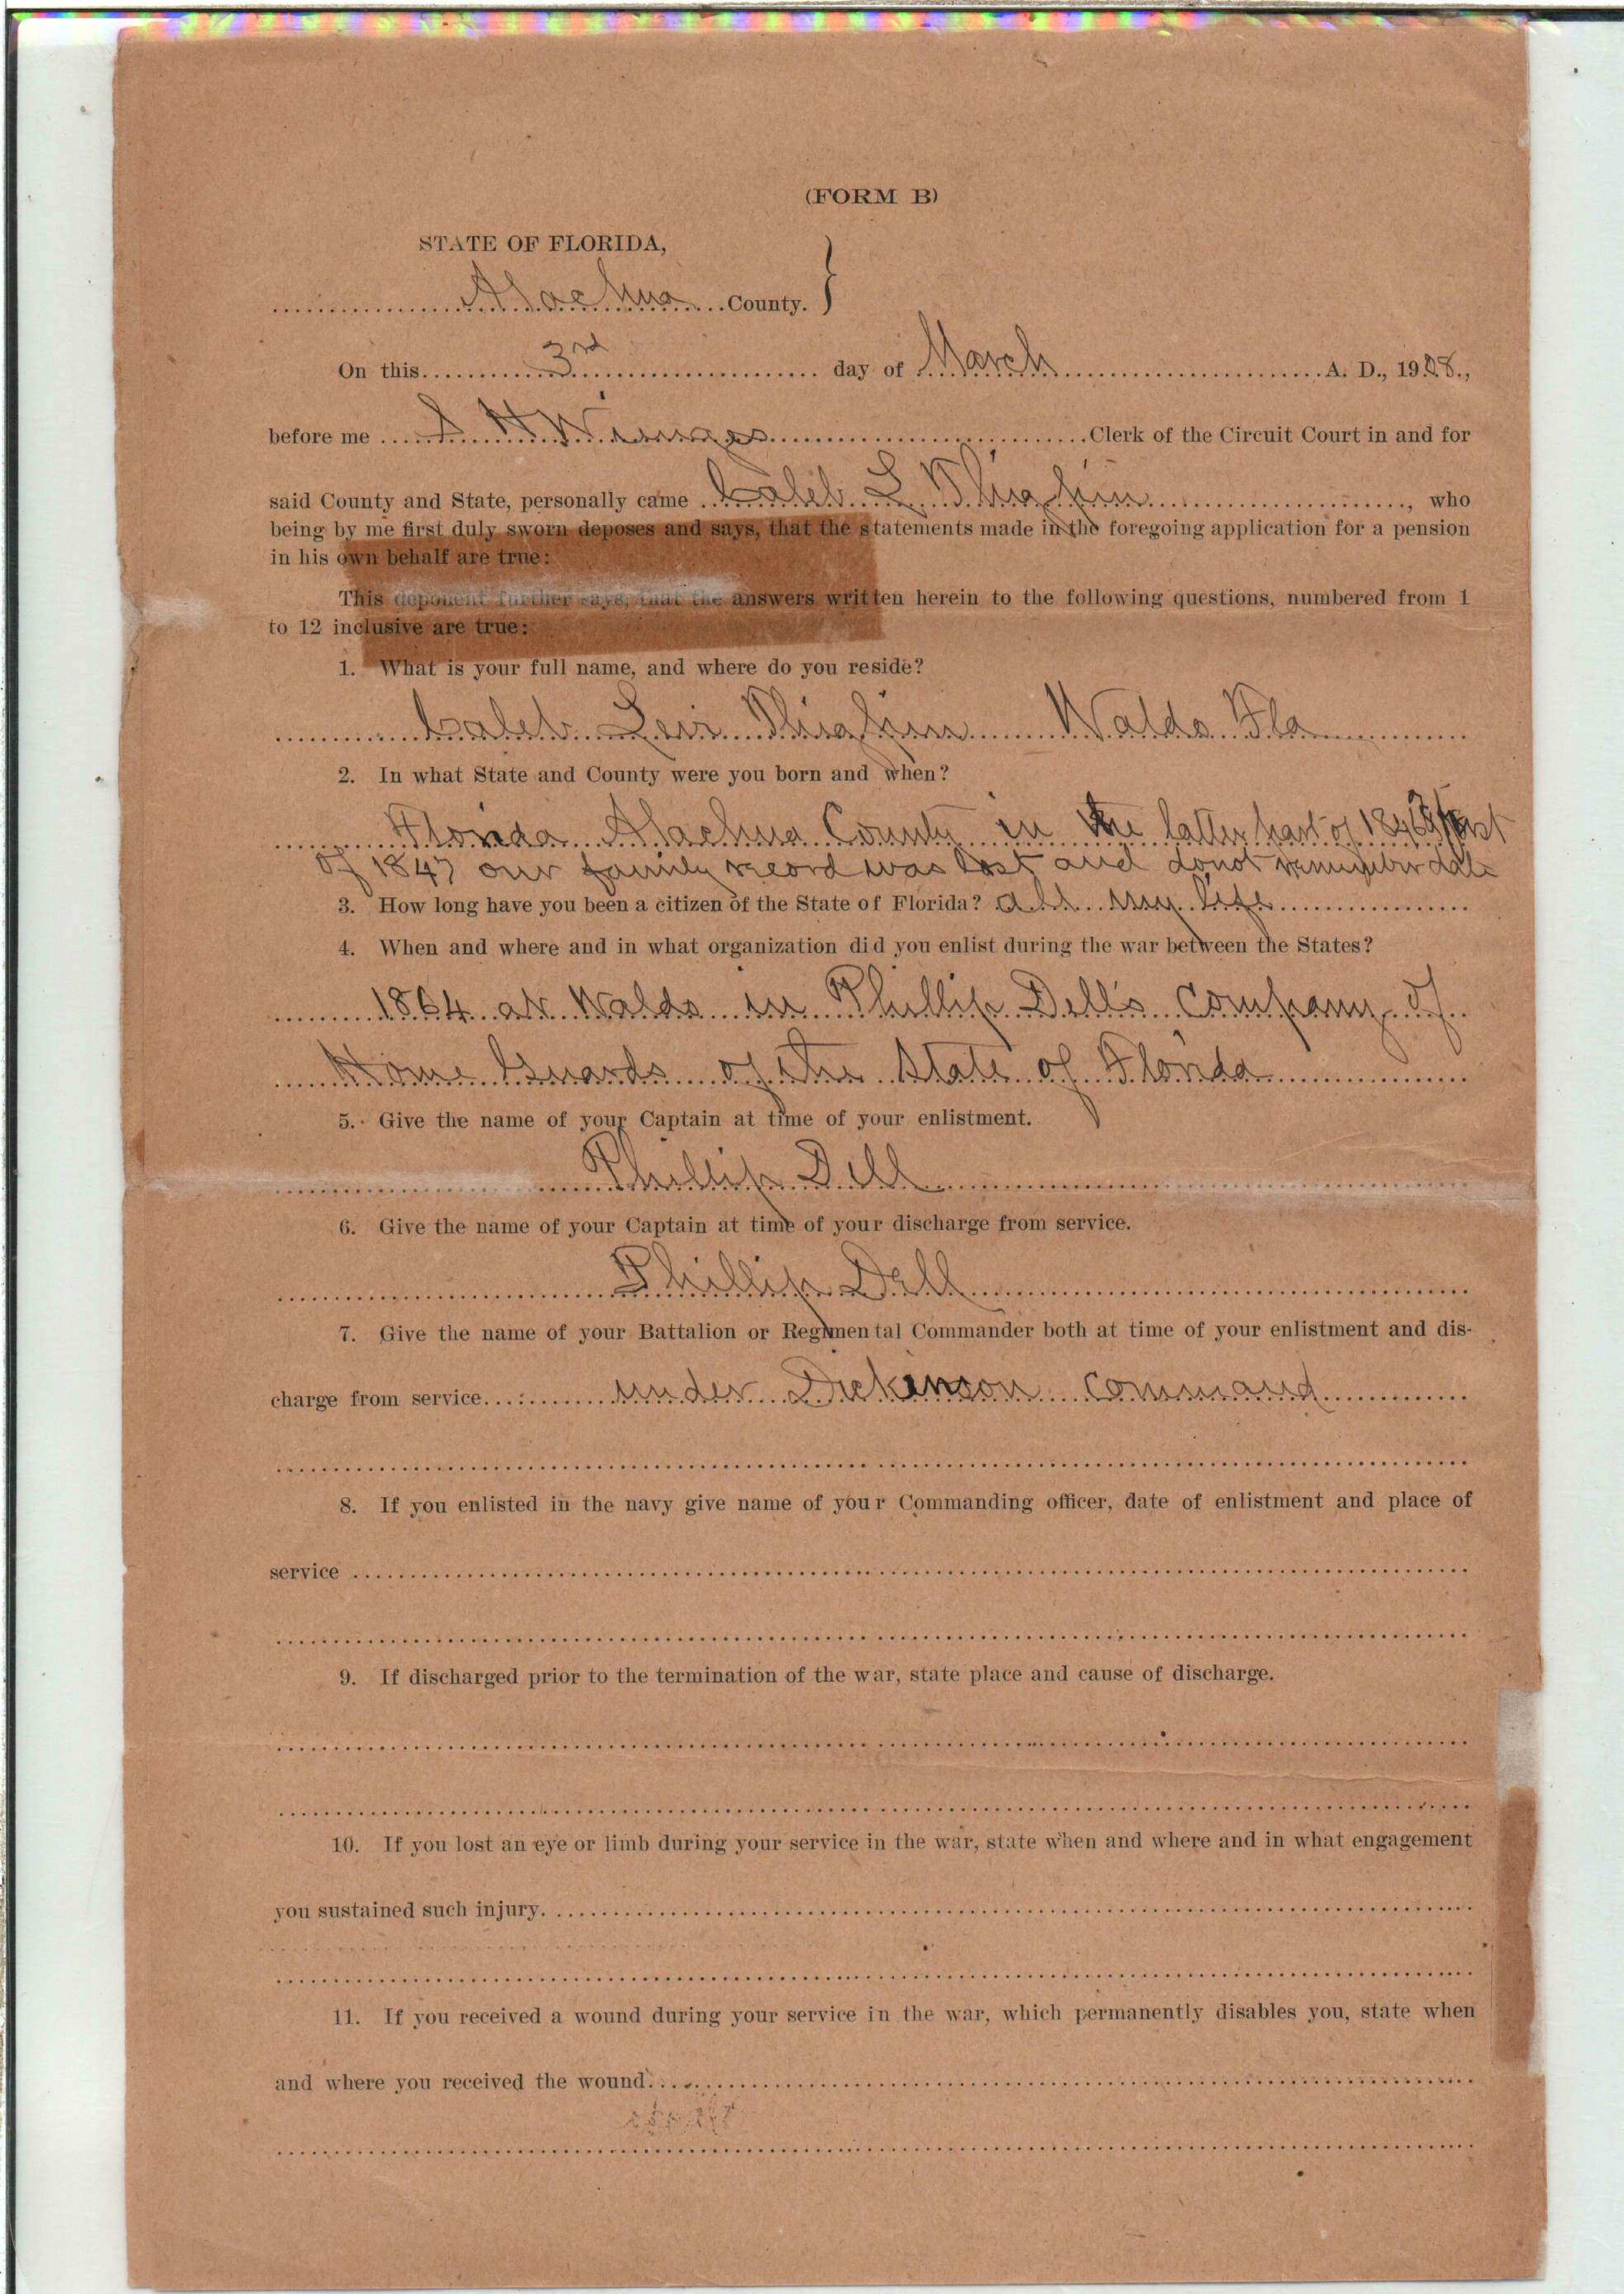 (FORM B)
STATE OF FLORIDA,
Alachua County.
On this 3rd day of March A. D., 1908.,
before me S H Wienges Clerk of the Circuit Court in and for
said County and State, personally came Caleb L. Thigpin, who
being by me first duly sworn deposes and says, that the statements made in the foregoing application for a pension
in his own behalf are true:
This deponent further says, that the answers written herein to the following questions, numbered from 1
to 12 inclusive are true:
1. What is your full name, and where do you reside?
Caleb Thigpin Waldo Fla
2. In what State and County were you born and when?
Florida Alachua County in the latter part of 1846
of 1847 our family record was lost and do not remember date
3. How long have you been a citizen of the State of Florida? All my life
4. When and where and in what organization did you enlist during the war between the States?
1864 at Waldo in Phillip Dell's Company of
Home Guards of the State of Florida
5. Give the name of your Captain at time of your enlistment.
Phillip Dell
6. Give the name of your Captain at time of your discharge from service.
Phillip Dell
7. Give the name of your Battalion or Regimental Commander both at time of your enlistment and dis-
charge from service. under Dickenson command
8. If you enlisted in the navy give name of your Commanding officer, date of enlistment and place of
service
9. If discharged prior to the termination of the war, state place and cause of discharge.
10. If you lost an eye or limb during your service in the war, state when and where and in what engagement
you sustained such injury.
11. If you received a wound during your service in the war, which permanently disables you, state when
and where you received the wound.